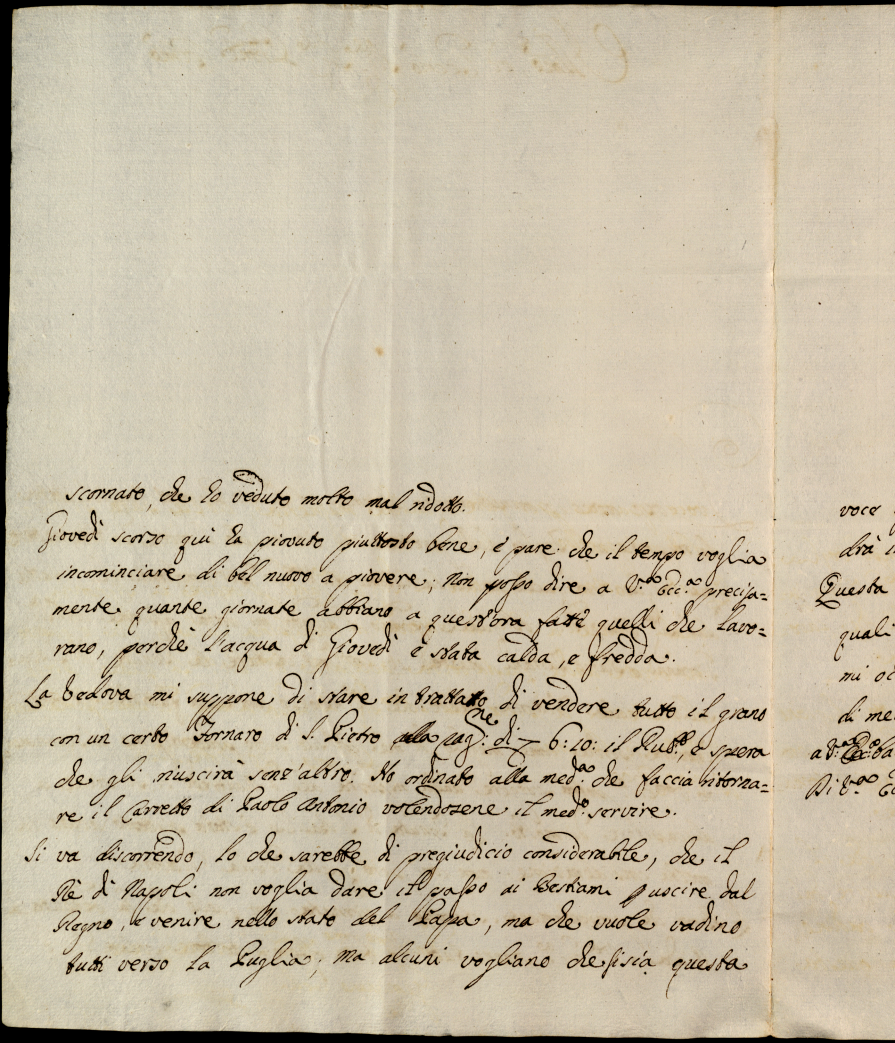 scornato, che ho veduto molto mal ridotto.
Giovedì scorso quì ha piovuto piuttosto bene, e pare che il tempo voglia
incominciare di bel nuovo a piovere; Non posso dire a V.ª Ecc.ª precisa=
mente quante giornate abbiano a quest'ora fatte quelli che lavo=
rano, perchè l'acqua di Giovedì è stata calda, e fredda.
La Vedova mi suppone di stare in trattato di vendere tutto il grano
con un certo Fornaro di S. Pietro alla rag:ne di 6:20: il Rub:º, e spera
che gli riuscirà senz'altro. Ho ordinato alla med:ª che faccia ritorna=
re il Carretto di Paolo Antonio volendosene il med:º servire.
Si va discorrendo, lo che sarebbe di pregiudicio considerabile, che il
Rè di Napoli non voglia dare il passo ai Bestiami p uscire dal
Regno, e venire nello stato del Papa, ma che vuole vadino
tutti verso la Puglia; ma alcuni vogliano che sisia questa
voce
drà
Questa
quali
mi
di me
a V.ª Ecc.ª
Di V.ª